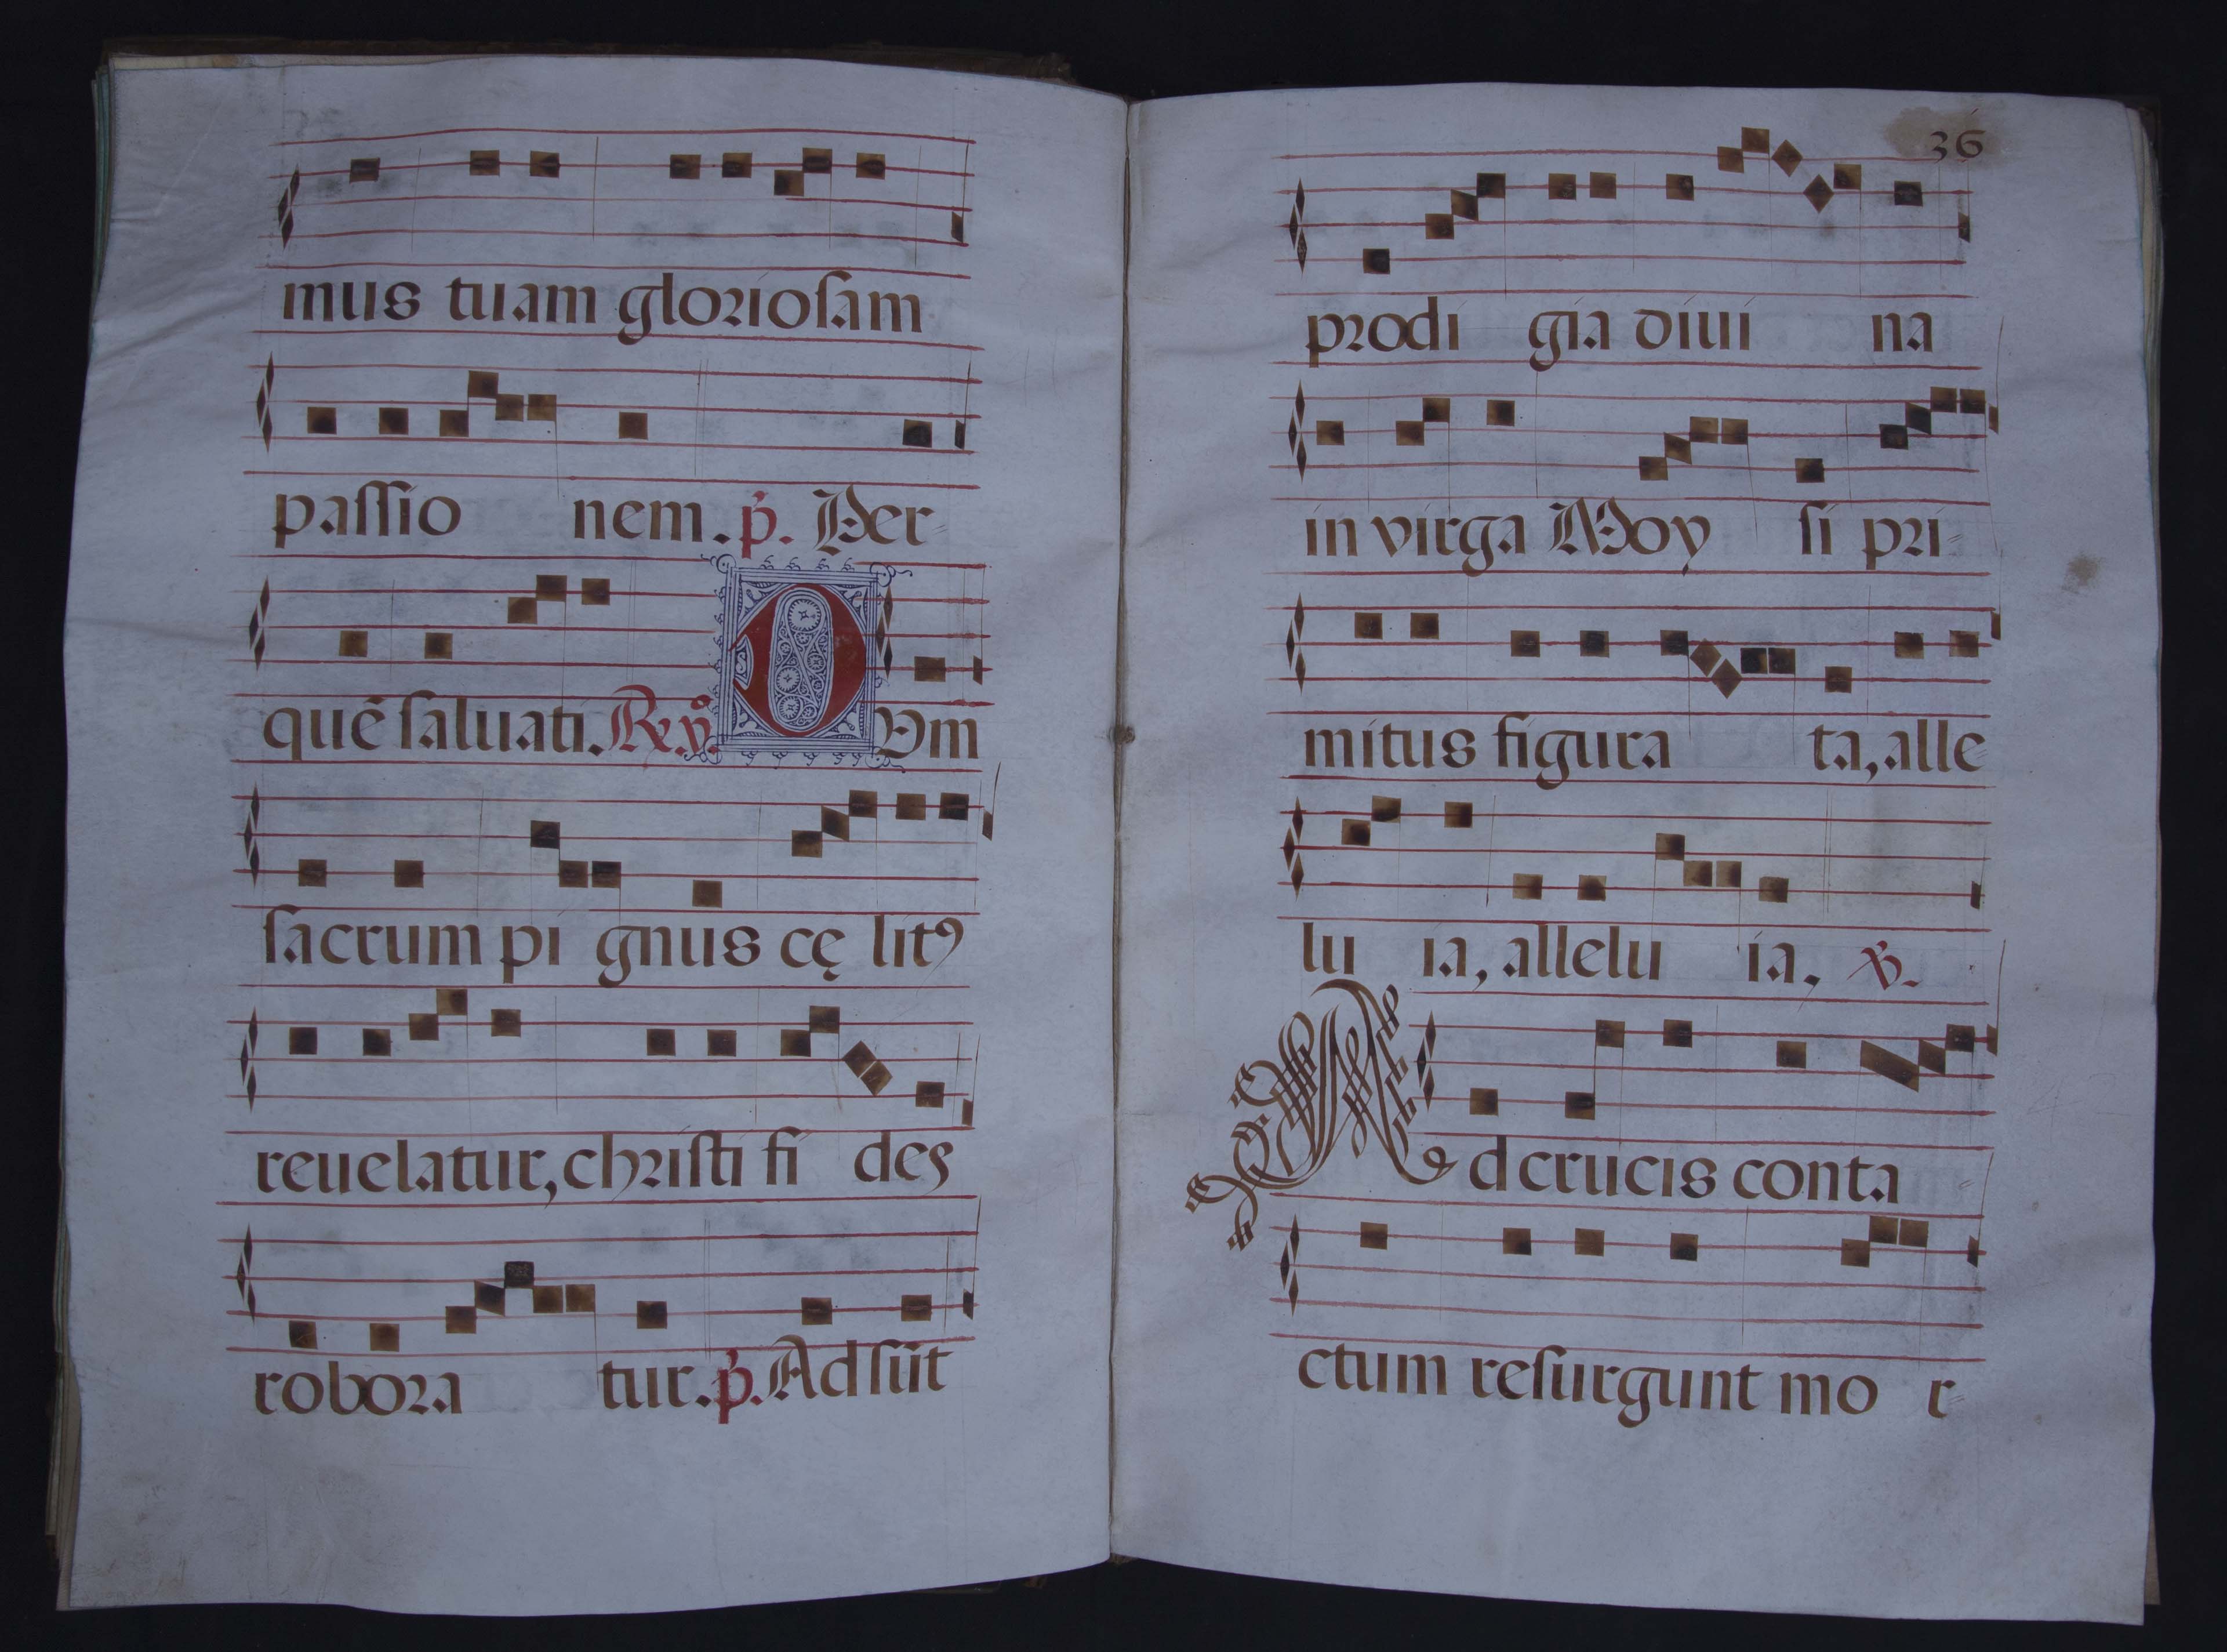 mus tuam glorioſam
paſſio nem. p. Per=
quē ſaluati. Rx. DUm
ſacrum pi gnus cę litꝰ
reuelatur, chriſti fi des
robora tur. p. Adſūt
36
prodi gia diui na
in virga Moy ſi pri=
mitus figura ta, alle
lu ia, allelu ia, ꝟ.
Ad crucis conta=
ctum reſurgunt mo r=